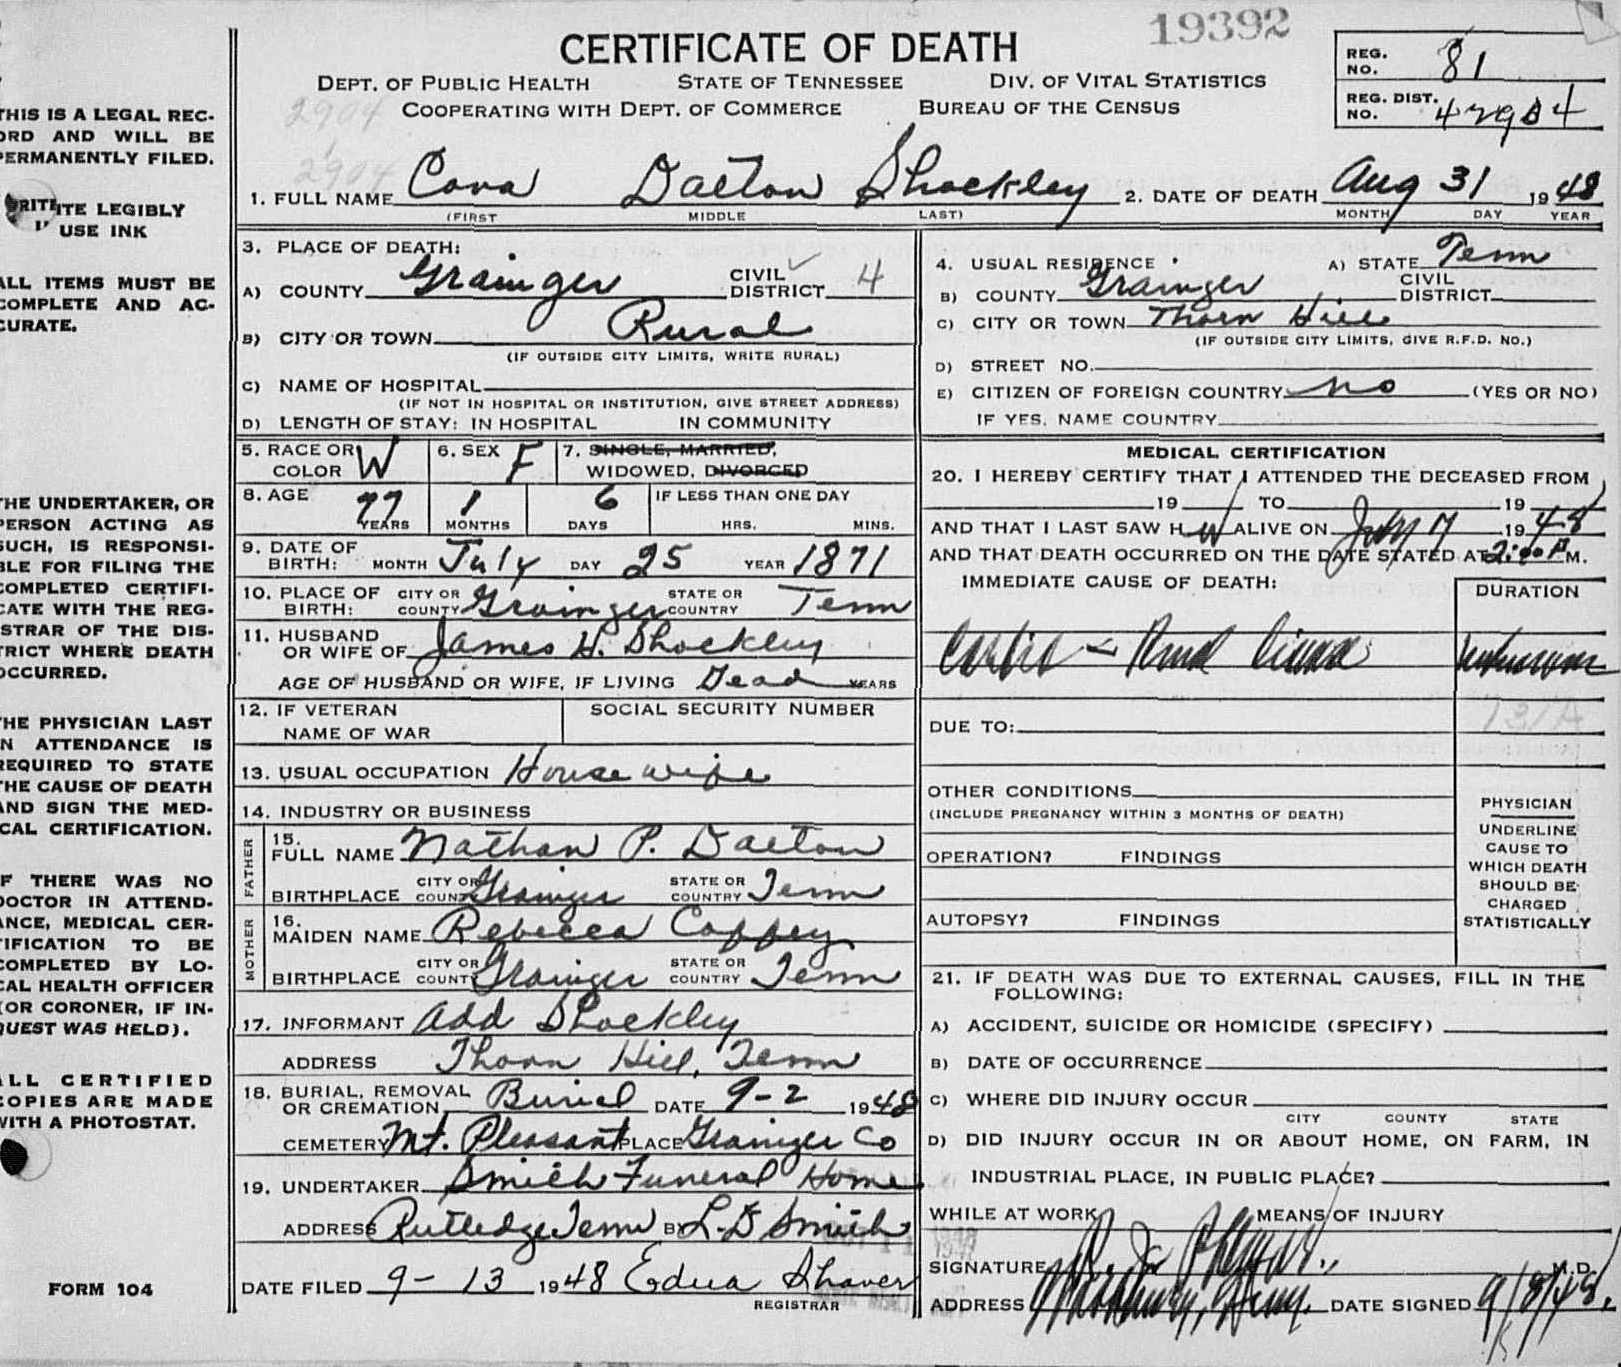 19392
CERTIFICATE OF DEATH
REG. NO. 81
DEPT. OF PUBLIC HEALTH STATE OF TENNESSEE DIV. OF VITAL STATISTICS
REG. DIST. NO.
2904 COOPERATING WITH DEPT. OF COMMERCE BUREAU OF THE CENSUS
2904
1. FULL NAME Cora Dalton Shockley 2. DATE OF DEATH Aug 31 1948
(FIRST MIDDLE LAST) MONTH DAY YEAR
3. PLACE OF DEATH:
A) COUNTY Grainger CIVIL DISTRICT 4
B) CITY OR TOWN Rural
(IF OUTSIDE CITY LIMITS, WRITE RURAL)
C) NAME OF HOSPITAL
(IF NOT IN HOSPITAL OR INSTITUTION, GIVE STREET ADDRESS)
D) LENGTH OF STAY: IN HOSPITAL IN COMMUNITY
4. USUAL RESIDENCE A) STATE Tenn
B) COUNTY Grainger CIVIL DISTRICT
C) CITY OR TOWN Thorn Hill
(IF OUTSIDE CITY LIMITS, GIVE R.F.D. NO.)
D) STREET NO.
E) CITIZEN OF FOREIGN COUNTRY no (YES OR NO)
IF YES, NAME COUNTRY
5. RACE OR COLOR W 6. SEX F 7. SINGLE, MARRIED, WIDOWED, DIVORCED
8. AGE 77 YEARS 1 MONTHS 6 DAYS IF LESS THAN ONE DAY HRS. MINS.
9. DATE OF BIRTH: MONTH July DAY 25 YEAR 1871
10. PLACE OF BIRTH: CITY OR COUNTY Grainger STATE OR COUNTRY Tenn
11. HUSBAND OR WIFE OF James H. Shockley
AGE OF HUSBAND OR WIFE, IF LIVING Dead YEARS
12. IF VETERAN NAME OF WAR SOCIAL SECURITY NUMBER
13. USUAL OCCUPATION House wife
14. INDUSTRY OR BUSINESS
FATHER
15. FULL NAME Nathan P. Dalton
BIRTHPLACE CITY OR COUNTY Grainger STATE OR COUNTRY Tenn
MOTHER
16. MAIDEN NAME Rebecca Coffey
BIRTHPLACE CITY OR COUNTY Grainger STATE OR COUNTRY Tenn
17. INFORMANT Add Shockley
ADDRESS Thorn Hill, Tenn
18. BURIAL, REMOVAL OR CREMATION Burial DATE 9-2 1948
CEMETERY Mt. Pleasant PLACE Grainger Co
19. UNDERTAKER Smith Funeral Home
ADDRESS Rutledge Tenn BY L. D Smith
DATE FILED 9-13 1948 Edna Shaver
REGISTRAR
MEDICAL CERTIFICATION
20. I HEREBY CERTIFY THAT I ATTENDED THE DECEASED FROM
19 TO 19
AND THAT I LAST SAW H ALIVE ON July 7 1948
AND THAT DEATH OCCURRED ON THE DATE STATED AT 2:00 P.M.
IMMEDIATE CAUSE OF DEATH:
DURATION
unknown
131A
DUE TO:
OTHER CONDITIONS
(INCLUDE PREGNANCY WITHIN 3 MONTHS OF DEATH)
OPERATION? FINDINGS
AUTOPSY? FINDINGS
PHYSICIAN
UNDERLINE
CAUSE TO
WHICH DEATH
SHOULD BE
CHARGED
STATISTICALLY
21. IF DEATH WAS DUE TO EXTERNAL CAUSES, FILL IN THE
FOLLOWING:
A) ACCIDENT, SUICIDE OR HOMICIDE (SPECIFY)
B) DATE OF OCCURRENCE
C) WHERE DID INJURY OCCUR
CITY COUNTY STATE
D) DID INJURY OCCUR IN OR ABOUT HOME, ON FARM, IN
INDUSTRIAL PLACE, IN PUBLIC PLACE?
WHILE AT WORK MEANS OF INJURY
SIGNATURE M.D.
ADDRESS DATE SIGNED 9/8/48.
THIS IS A LEGAL REC-
ORD AND WILL BE
PERMANENTLY FILED.
WRITE LEGIBLY
USE INK
ALL ITEMS MUST BE
COMPLETE AND AC-
CURATE.
THE UNDERTAKER, OR
PERSON ACTING AS
SUCH, IS RESPONSI-
BLE FOR FILING THE
COMPLETED CERTIFI-
CATE WITH THE REG-
ISTRAR OF THE DIS-
TRICT WHERE DEATH
OCCURRED.
THE PHYSICIAN LAST
IN ATTENDANCE IS
REQUIRED TO STATE
THE CAUSE OF DEATH
AND SIGN THE MED-
ICAL CERTIFICATION.
IF THERE WAS NO
DOCTOR IN ATTEND-
ANCE, MEDICAL CER-
TIFICATION TO BE
COMPLETED BY LO-
CAL HEALTH OFFICER
(OR CORONER, IF IN-
QUEST WAS HELD).
ALL CERTIFIED
COPIES ARE MADE
WITH A PHOTOSTAT.
FORM 104